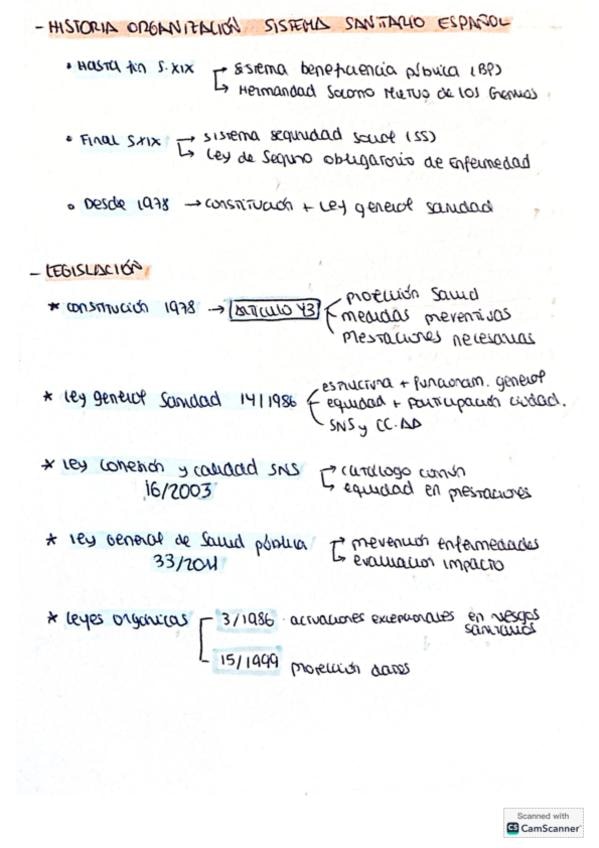 - HISTORIA ORGANIZACIÓN SISTEMA SANITARIO ESPAÑOL
• Hasta fin S.XIX → Sistema beneficencia pública (BP)
↳ Hermandad Socorro Mutuo de los Gremios
• Final S.XIX → Sistema seguridad social (SS)
↳ Ley de Seguro obligatorio de Enfermedad
• Desde 1978 → constitución + Ley general sanidad
- LEGISLACIÓN
* Constitución 1978 → ARTICULO 43
protección salud
medidas preventivas
prestaciones necesarias
* Ley general Sanidad 14/1986
estructura + funcionam. general
equidad + participación ciudad.
SNS y CC.AA
* Ley cohesión y calidad SNS
16/2003
→ catálogo común
↳ equidad en prestaciones
* Ley General de Salud pública
33/2011
→ prevención enfermedades
↳ evaluación impacto
* Leyes orgánicas
3/1986 · actuaciones excepcionales en riesgos
sanitarios
15/1999 protección datos
Scanned with
CS CamScanner